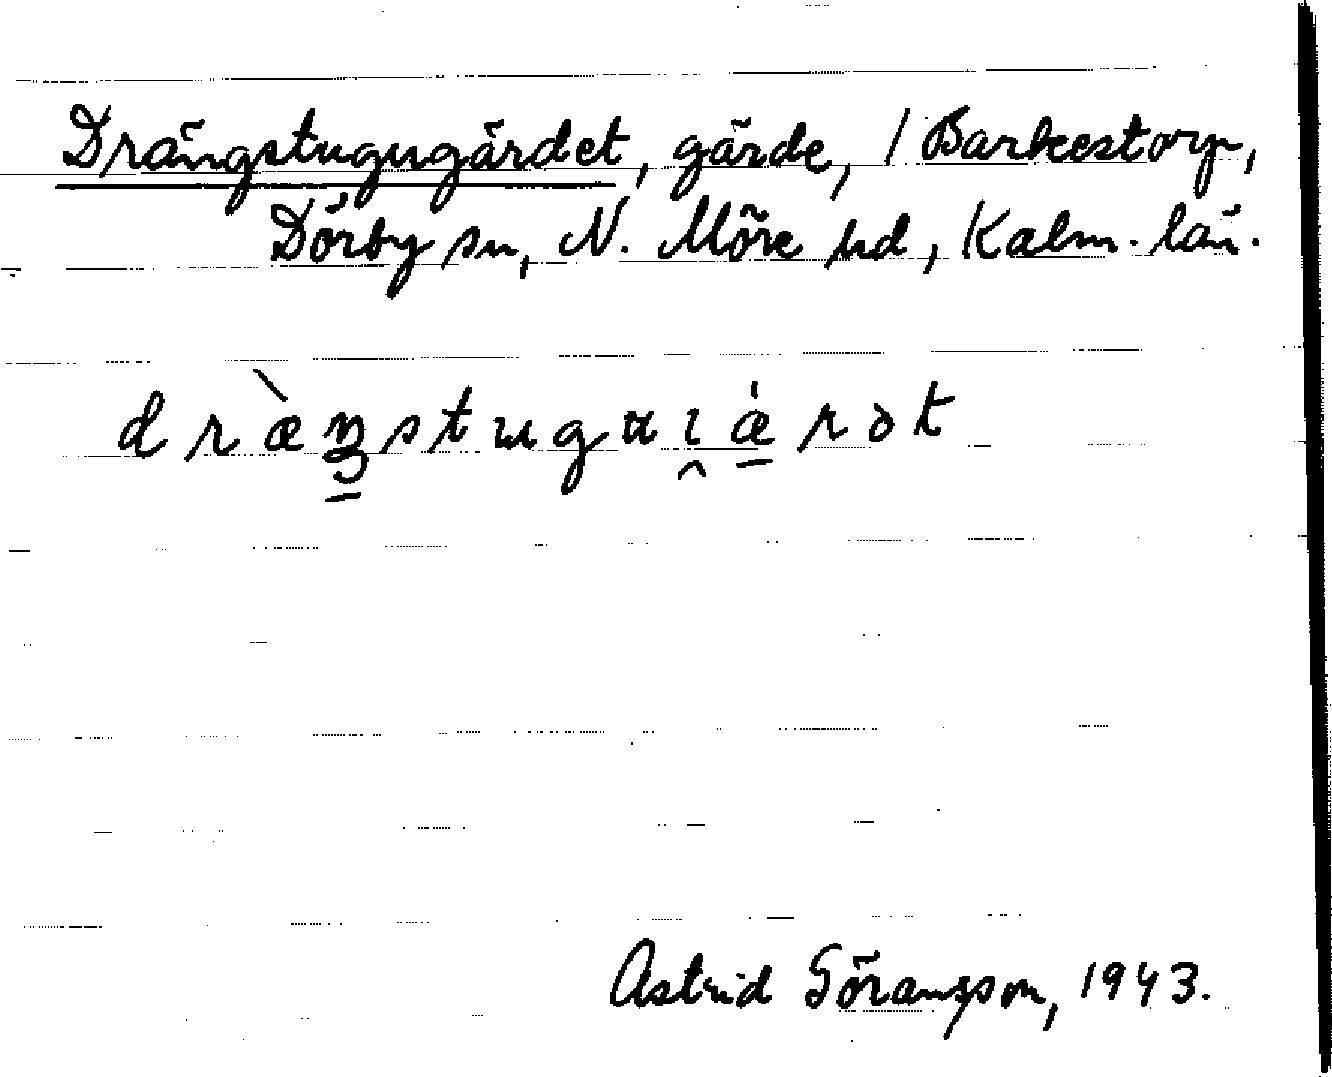 Drängstugugärdet, gärde, / Barkestorp,
Dörby sn, N. Möre hd, Kalm. län.
dræ̀ŋstuguɩæ̇rət
Astrid Göransson, 1943.